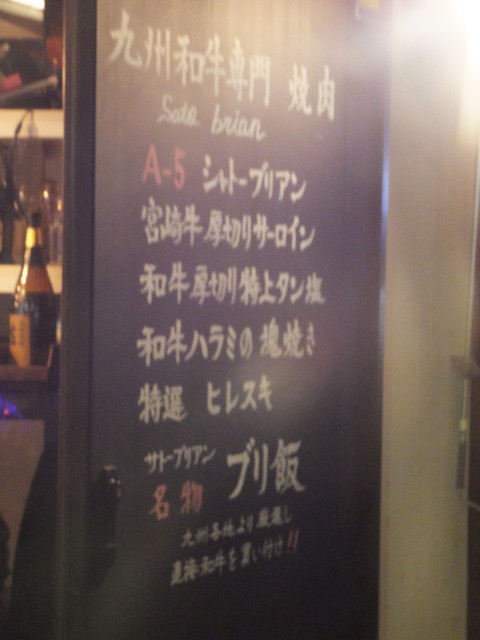 九州和牛専門 焼肉
Sato brian
A-5 シャトーブリアン
宮崎牛厚切りサーロイン
和牛厚切り特上タン塩
和牛ハラミの塊焼き
特選 ヒレスキ
サトーブリアン
名物 ブリ飯
九州各地より厳選し
直接和牛を買い付け!!